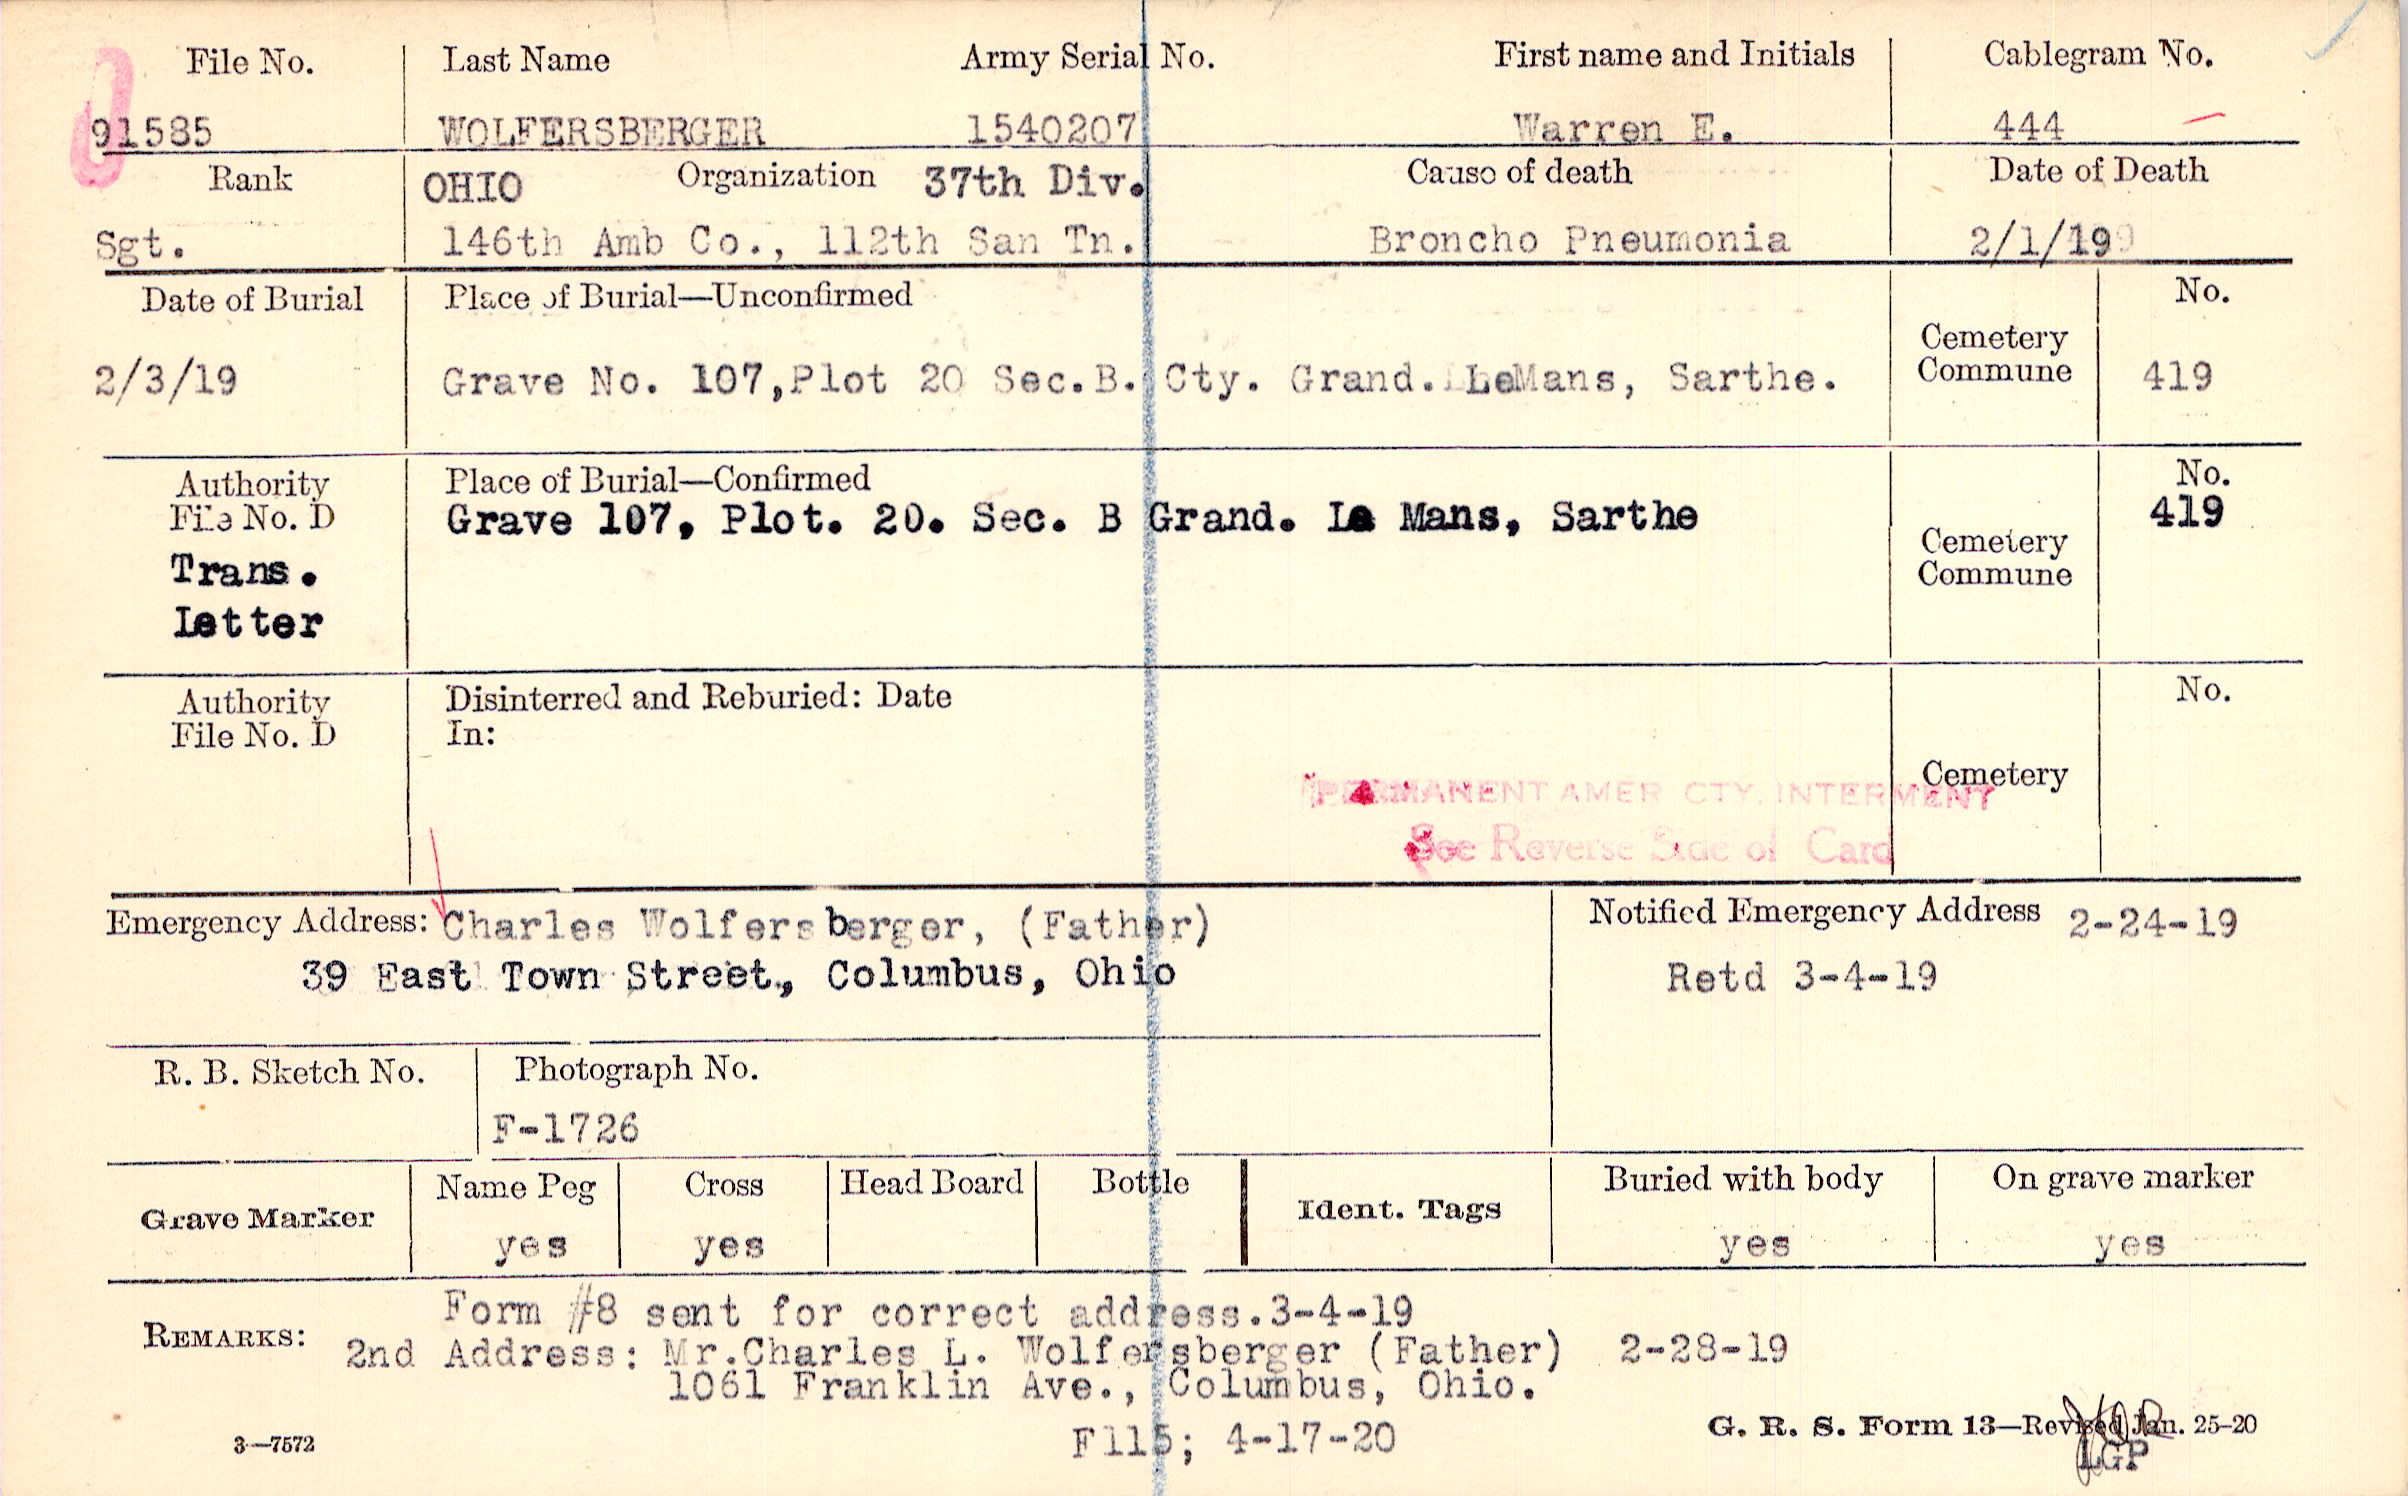 File No. Last Name Army Serial No. First name and Initials Cablegram No.
91585 WOLFERSBERGER 1540207 Warren E. 444
Rank OHIO Organization 37th Div. Cause of death Date of Death
Sgt. 146th Amb Co., 112th San Tn. Broncho Pneumonia 2/1/19
Date of Burial Place of Burial—Unconfirmed No.
Cemetery
Commune
2/3/19 Grave No. 107,Plot 20 Sec.B. Cty. Grand. LeMans, Sarthe. 419
Authority Place of Burial—Confirmed No.
File No. D Grave 107, Plot. 20. Sec. B Grand. Le Mans, Sarthe 419
Cemetery
Commune
Trans.
Letter
Authority Disinterred and Reburied: Date No.
File No. D In:
Cemetery
PERMANENT AMER CTY. INTERMENT
See Reverse Side of Card
Emergency Address: Charles Wolfersberger, (Father) Notified Emergency Address 2-24-19
39 East Town Street, Columbus, Ohio Retd 3-4-19
R. B. Sketch No. Photograph No.
F-1726
Grave Marker Name Peg Cross Head Board Bottle Ident. Tags Buried with body On grave marker
yes yes yes yes
Form #8 sent for correct address.3-4-19
REMARKS: 2nd Address: Mr.Charles L. Wolfersberger (Father) 2-28-19
1061 Franklin Ave., Columbus, Ohio.
F115; 4-17-20
3—7572 G. R. S. Form 13—Revised Jan. 25-20
LGP